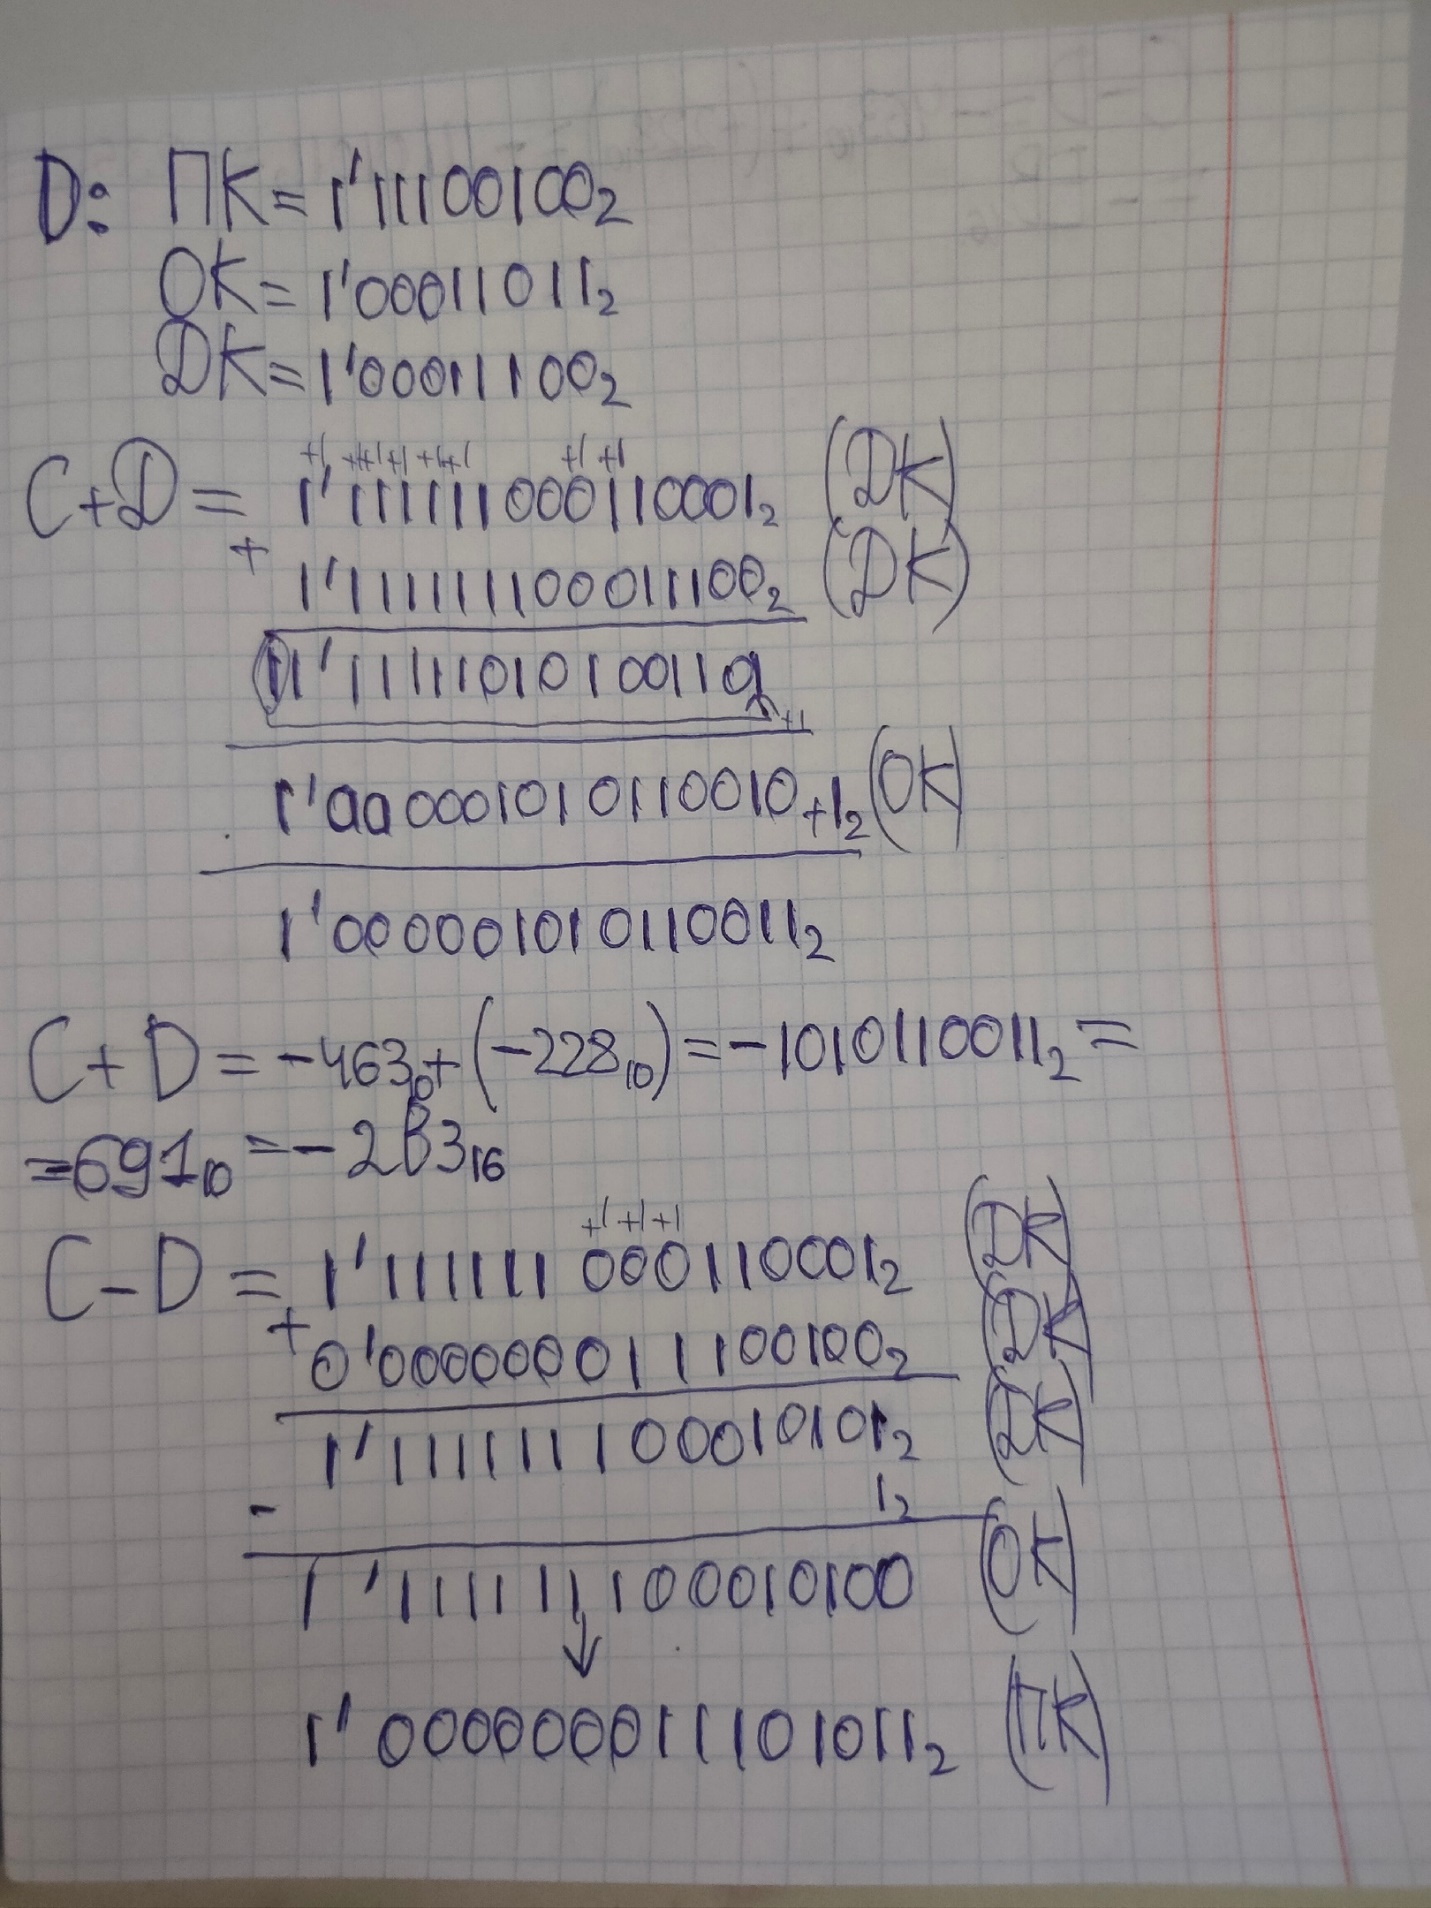 D: ПК = 1'11100100₂
ОК = 1'00011011₂
ДК = 1'00011100₂
+1 +1 +1 +1 +1 +1 +1 +1
C+D = 1'111111000110001₂ (ДК)
+ 1'111111100011100₂ (ДК)
11'111110101001101
+1
1'000001010110010+1₂ (ОК)
1'000001010110011₂
C+D = -463₁₀+(-228₁₀) = -1010110011₂ =
= 691₁₀ = -2B3₁₆
+1 +1 +1
C-D = 1'111111000110001₂ (ДК)
+ 0'000000011100100₂ (ДК)
1'111111100010101₂ (ДК)
- 1₂
1'111111100010100 (ОК)
1'000000011101011₂ (ПК)